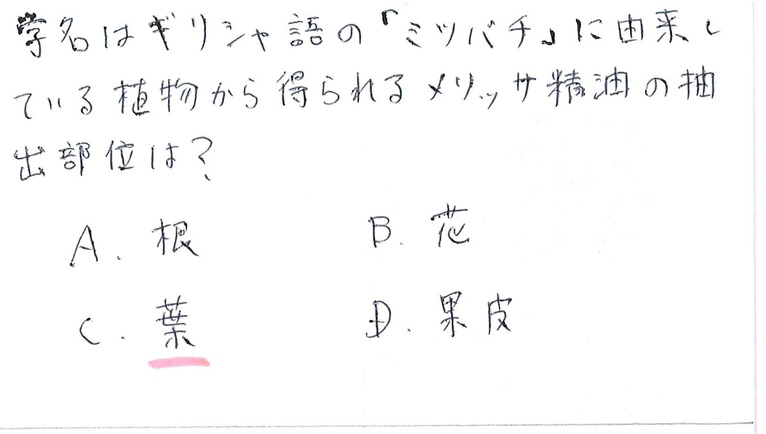 学名はギリシャ語の「ミツバチ」に由来し
ている植物から得られるメリッサ精油の抽
出部位は？
A. 根 B. 花
C. 葉 D. 果皮